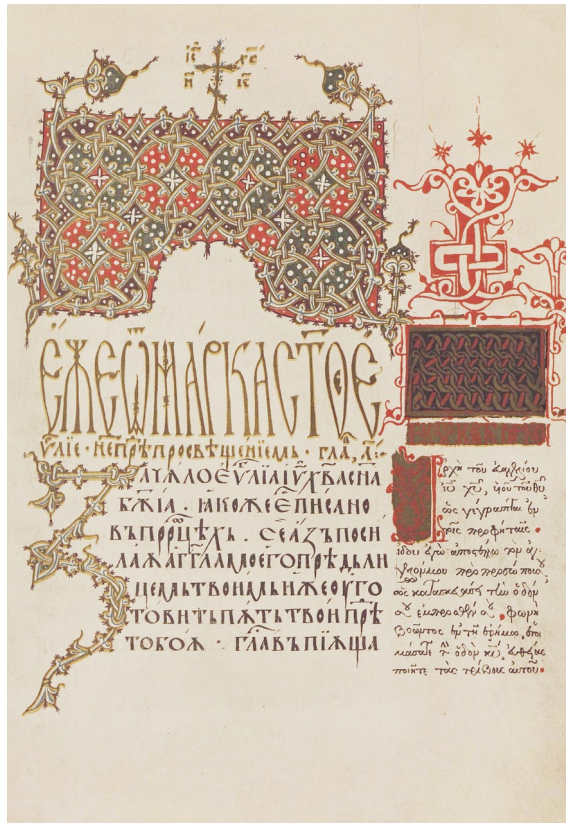 ЕЖЕ Ѿ МАРКА СТОЕ
ЕѴ҃ЛІЕ · ПРОСВѢЩЕНІЕМЬ · ГЛА҃
ЗАЧѦЛО ЕѴ҃ЛІА ІѴ҃ ХВА СНА
БЖІА · ꙖКОЖЕ Е҃ ПИСАНО
ВЪ ПРРЦѢХЬ · СЕ АЗЪ ПОСИ
ЛАѦ АГГЛА МОЕГО ПРѢД ЛИ
ЦЕМЬ ТВОИМЬ ИЖЕ ОУГО
ТОВИТЬ ПѦТЬ ТВОИ ПРѢ
ТОБОѦ · ГЛА ВЪПІѦЩА
Ἀρχὴ τοῦ εὐαγγελίου
ἰυ χυ, υἱοῦ τοῦ θυ
ὡς γέγραπται ἐν
τοῖς προφήταις.
ἰδοὺ ἐγὼ ἀποστέλλω τὸν ἄγ
γελόν μου πρὸ προσώπου
ὃς κατασκευάσει τὴν ὁδόν
σου ἔμπροσθέν σου. φωνὴ
βοῶντος ἐν τῇ ἐρήμῳ, ἑτοι
μάσατε τὴν ὁδὸν κυ, εὐθείας
ποιεῖτε τὰς τρίβους αὐτοῦ.